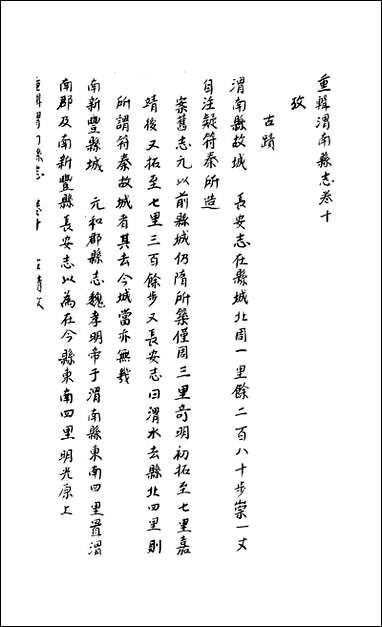 重輯渭南縣志卷十
攷
古蹟
渭南縣故城　長安志在縣城北周一里餘二百八十步崇一丈
自注疑符秦所造
案舊志元以前縣城仍隋所築僅周三里奇明初拓至七里嘉
靖後又拓至七里三百餘步又長安志曰渭水去縣北四里則
所謂符秦故城者其去今城當亦無幾
南新豐縣城　元和郡縣志魏孝明帝于渭南縣東南四里置渭
南郡及南新豐縣長安志以為在今縣東南四里明光原上
重輯渭南縣志　卷十　古蹟攷